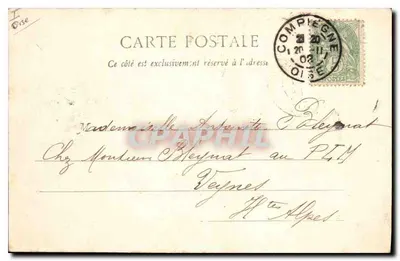 I
Oise
CARTE POSTALE
Ce côté est exclusivement réservé à l'adresse
COMPIÈGNE
20 - 11
02
OISE
CPAPHIL
Mademoiselle Antoinette Bleynat
Chez Monsieur Bleynat au PLM
Veynes
Htes Alpes